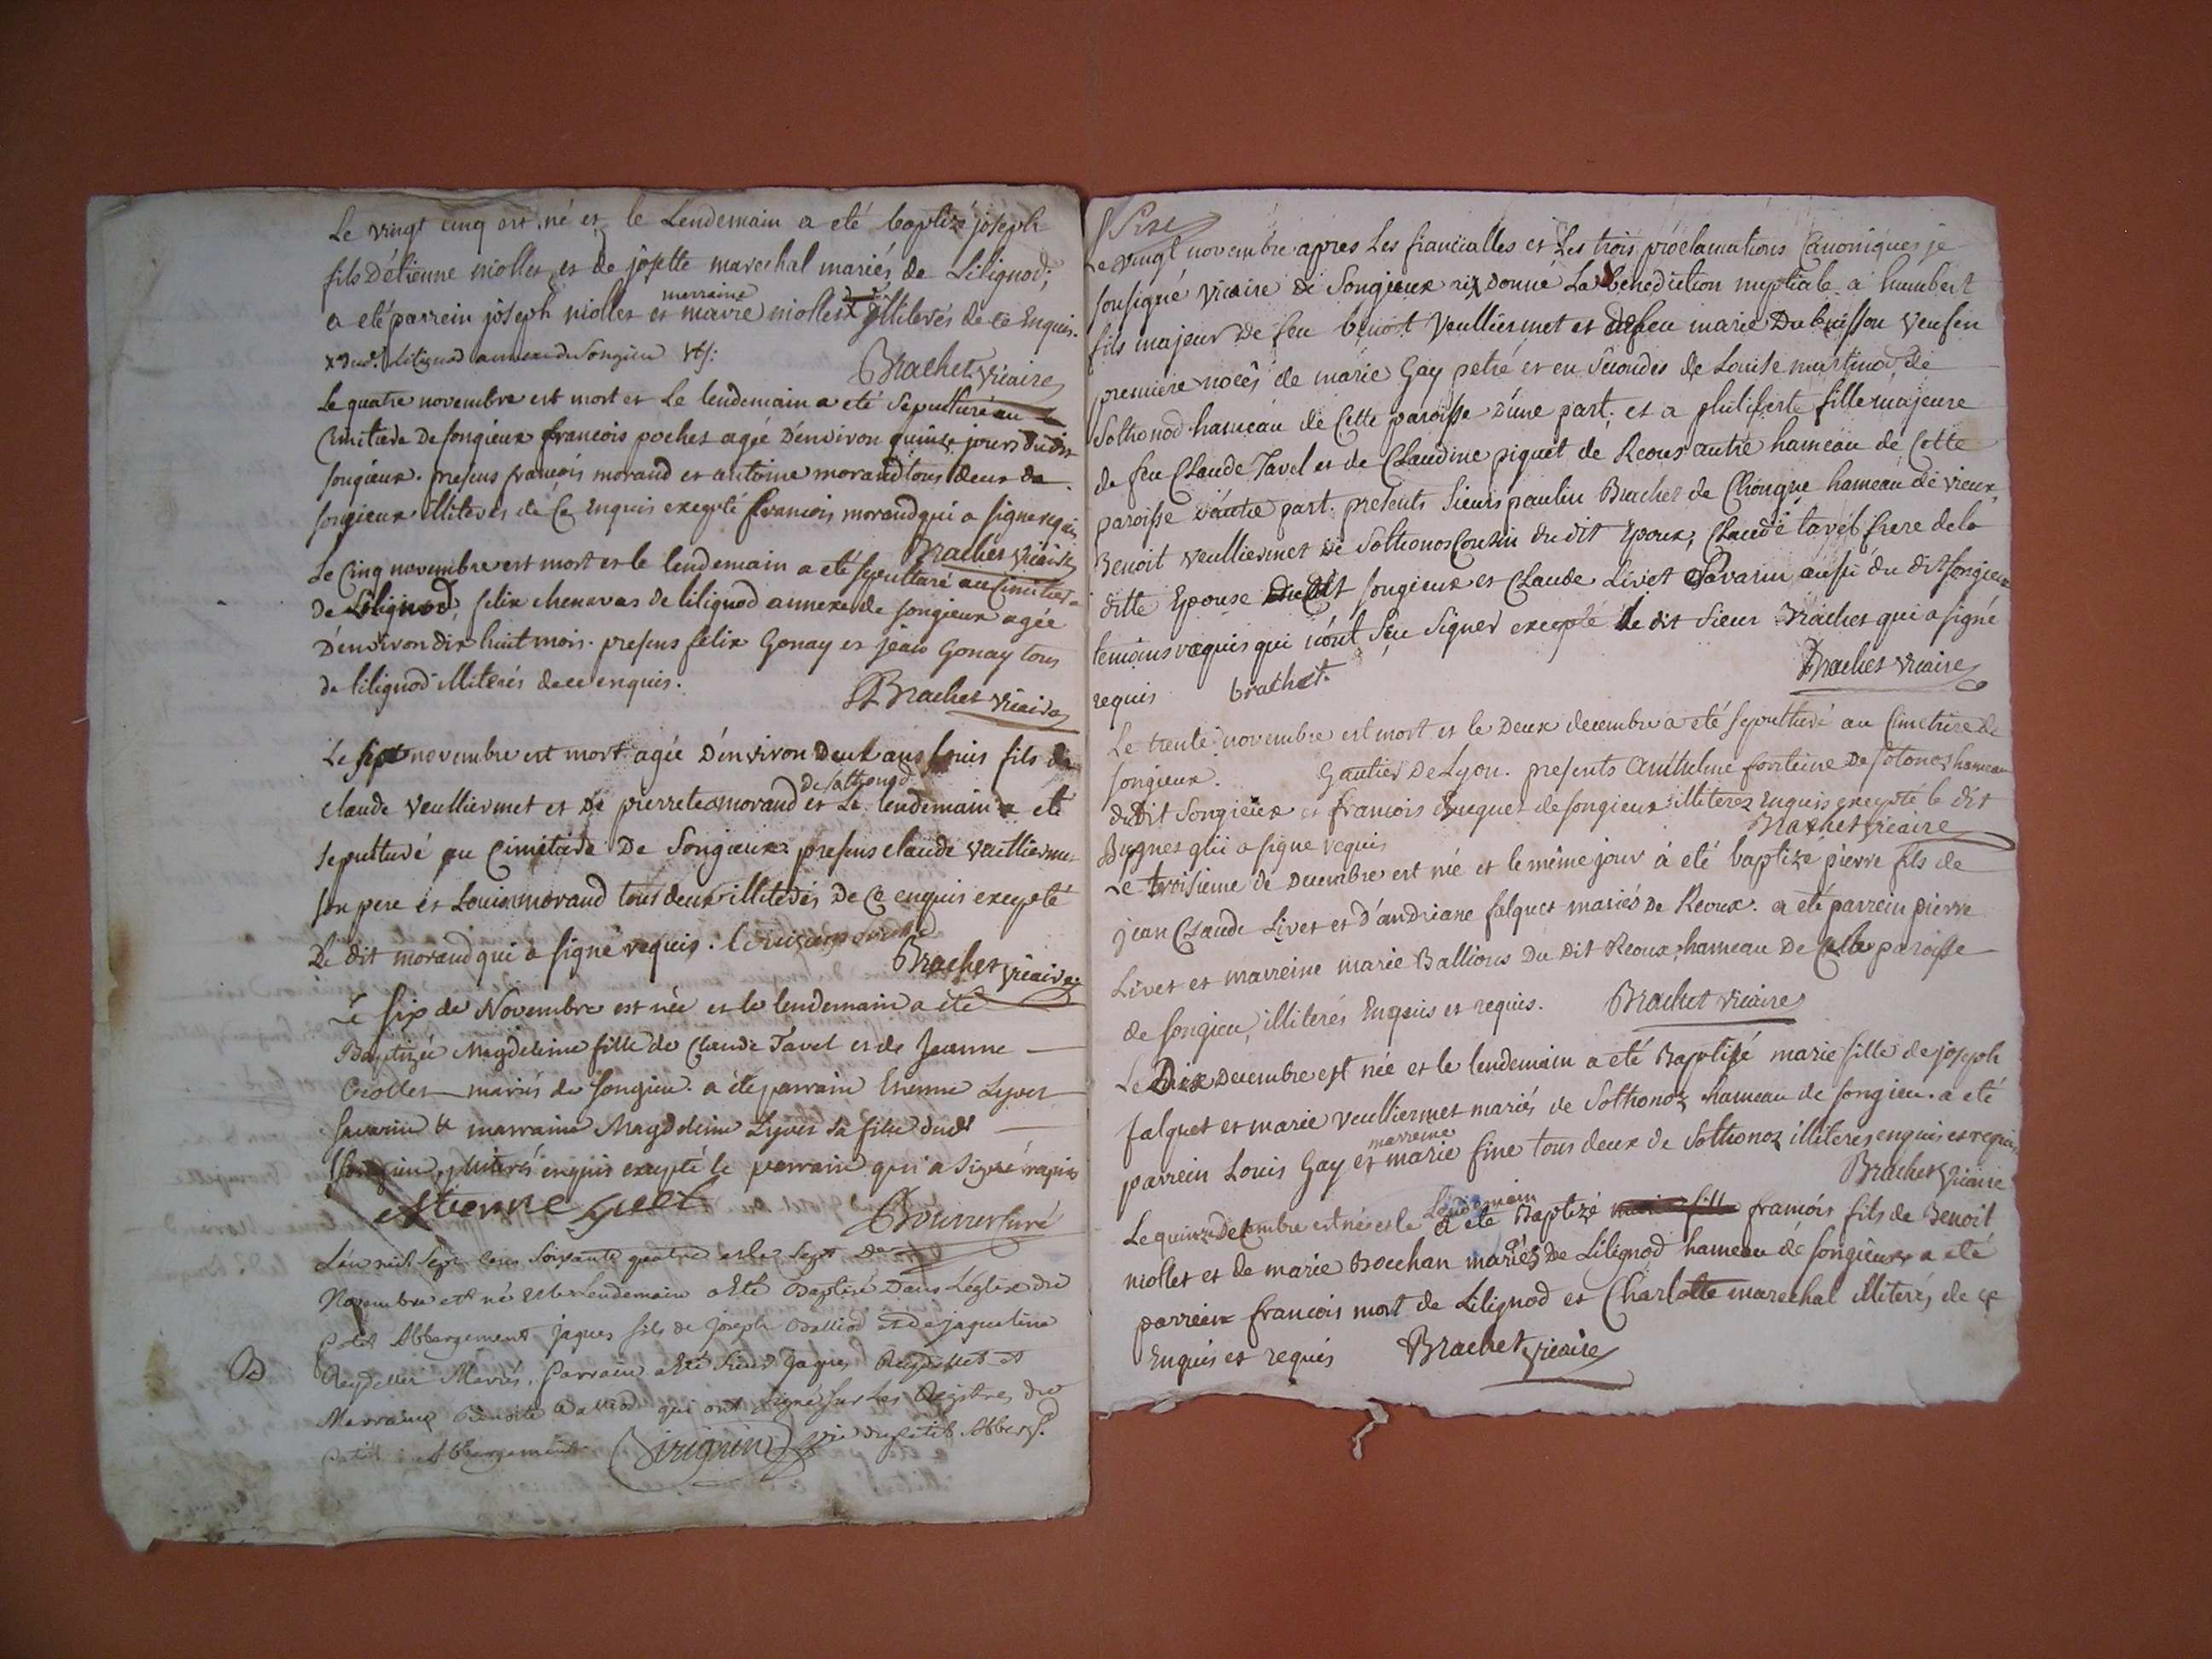 Le vingt cinq est né et le Lendemain a eté baptizé joseph
fils D'étienne niollet et de josette marechal mariés de Lilignod;
a eté parrein joseph niollet et marraine marie niollet illiterés de ce Enquis.
Lilignod annexe du Songieu
Brachet vicaire
Le quatre novembre est mort et Le lendemain a eté Sepulturé au
Cimitiere De songieux francois pochet agée D'environ quinze jours du dit
songieux. presens francois morand et antoine morand tous deux de
songieux illiterés de Ce Enquis excepté francois morand qui a signé requis
Brachet vicaire
Le Cinq novembre est mort et le lendemain a eté sepulturé au Cimitiere
de Lilignod, felix chenavas de lilignod annexe de songieux agée
D'environ dix huit mois. presens felix Gonay et jean Gonay tous
de lilignod illiterés de ce enquis.
Brachet vicaire
Le sept novembre est mort agée D'environ Deux ans Louis fils de
claude veulliermet et de pierrete morand de sothonod et Le lendemain a eté
sepulturé au Cimitiere De Songieux. presens claude veulliermet
son pere et Louis morand tous deux illiterés De Ce enquis excepté
Le dit morand qui a signé requis. Louis morand
Brachet vicaire
Le six de Novembre est née et le lendemain a été
Baptizée Magdeleine fille de Claude Tavel et de Jeanne
Criollet mariés de songieu. a été parrain Etienne Lyvet
Savarin & marraine Magdeleine Lyvet sa fille dudt
songieu, illiterés enquis excepté le parrain qui a signé requis
estienne Lyvet
Bouvier curé
L'an mil sept cens soixante quatre et le sept de
Novembre est né et le Lendemain a esté Baptisé Dans L'eglise du
petit Abbergement jaques fils de joseph Balliod et de jaqueline
Reydellet Mariés. parrain a esté sieur jaques Reydellet et
Marraine Benoite Balliod qui ont signé sur Les Registres du
petit Abbergement. Sirignin vic du petit Abberg.
Seize
Le vingt novembre apres Les fiancialles et Les trois proclamations Canoniques je
sousigné vicaire de Songieux ai donné La benediction nuptiale a humbert
fils majeur de feu benoit veulliermet et de feu marie Dubuisson veuf en
premiere noces de marie Gay petré et en secondes de Louise martinod de
Sothonod hameau de Cette paroisse d'une part. et a philiberte fille majeure
de feu Claude Tavel et de Claudine piquet de Reoux autre hameau de Cette
paroisse d'autre part. presents sieurs paulin Brachet de Chongne hameau de vieux,
Benoit veulliermet de Sothonos Cousin du dit Epoux, Claude tavel frere de la
ditte Epouse du dit songieux et Claude Livet Savarin aussi du dit songieux
temoins requis qui n'ont sçu signer excepté le dit sieur Brachet qui a signé
requis brachet.
Brachet vicaire
Le trente novembre est mort et le Deux decembre a eté sepulturé au Cimetiere de
songieux. Gautier De Lyon. presents anthelme fonteine De sotonos hameau
du dit Songieux et francois Buquet de songieux illiterez Enquis excepté le dit
Bugnet qui a signé requis
Brachet vicaire
Le troisieme de Decembre est né et le même jour a eté baptizé pierre fils de
jean Claude Livet et d'andriane falquet mariés de Reoux. a eté parrein pierre
Livet et marreine marie Ballious Du Dit Reoux, hameau De Cette paroisse
de songieu, illiterés Enquis et requis. Brachet vicaire
Le Dix Decembre est née et le lendemain a eté Baptizé marie fille de joseph
falquet et marie veulliermet mariés de Sothonoz hameau de songieu. a eté
parrein Louis Gay et marreine marie fine tous deux de Sothonoz illiteres enquis et requis
Brachet vicaire
Le quinze Decembre est né et le Lendemain a eté Baptizé francois fils de Benoit
niollet et de marie Bocchan mariés De Lilignod hameau de songieux a eté
parrein francois mort de Lilignod et Charlotte marechal illiterés de ce
Enquis et requis Brachet vicaire